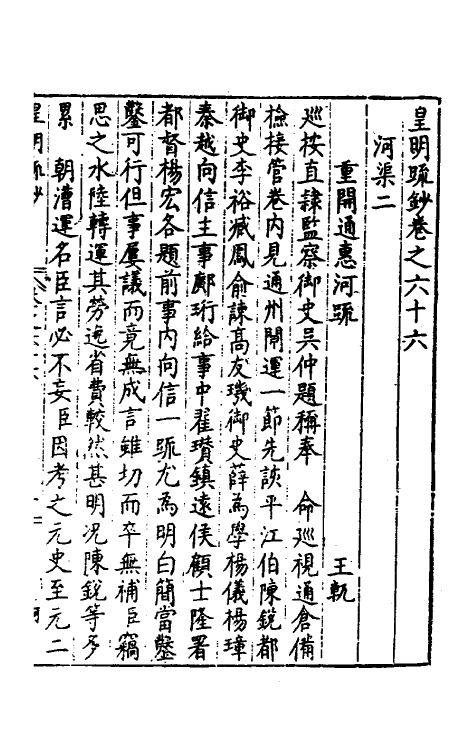 皇明疏鈔卷之六十六
河渠二
重開通惠河疏 王軏
巡按直隸監察御史吳仲題稱奉 命巡視通倉備
檢接管卷內見通州閘運一節先該平江伯陳銳都
御史李裕臧鳳俞諫高友璣御史薛為學楊儀楊璋
秦越向信主事鄺珩給事中翟瓚鎮遠侯顧士隆署
都督楊宏各題前事內向信一疏尤為明白簡當鑿
鑿可行但事屢議而竟無成言雖切而卒無補臣竊
思之水陸轉運其勞逸省費較然甚明況陳銳等多
累 朝漕運名臣言必不妄臣因考之元史至元二
皇明疏鈔